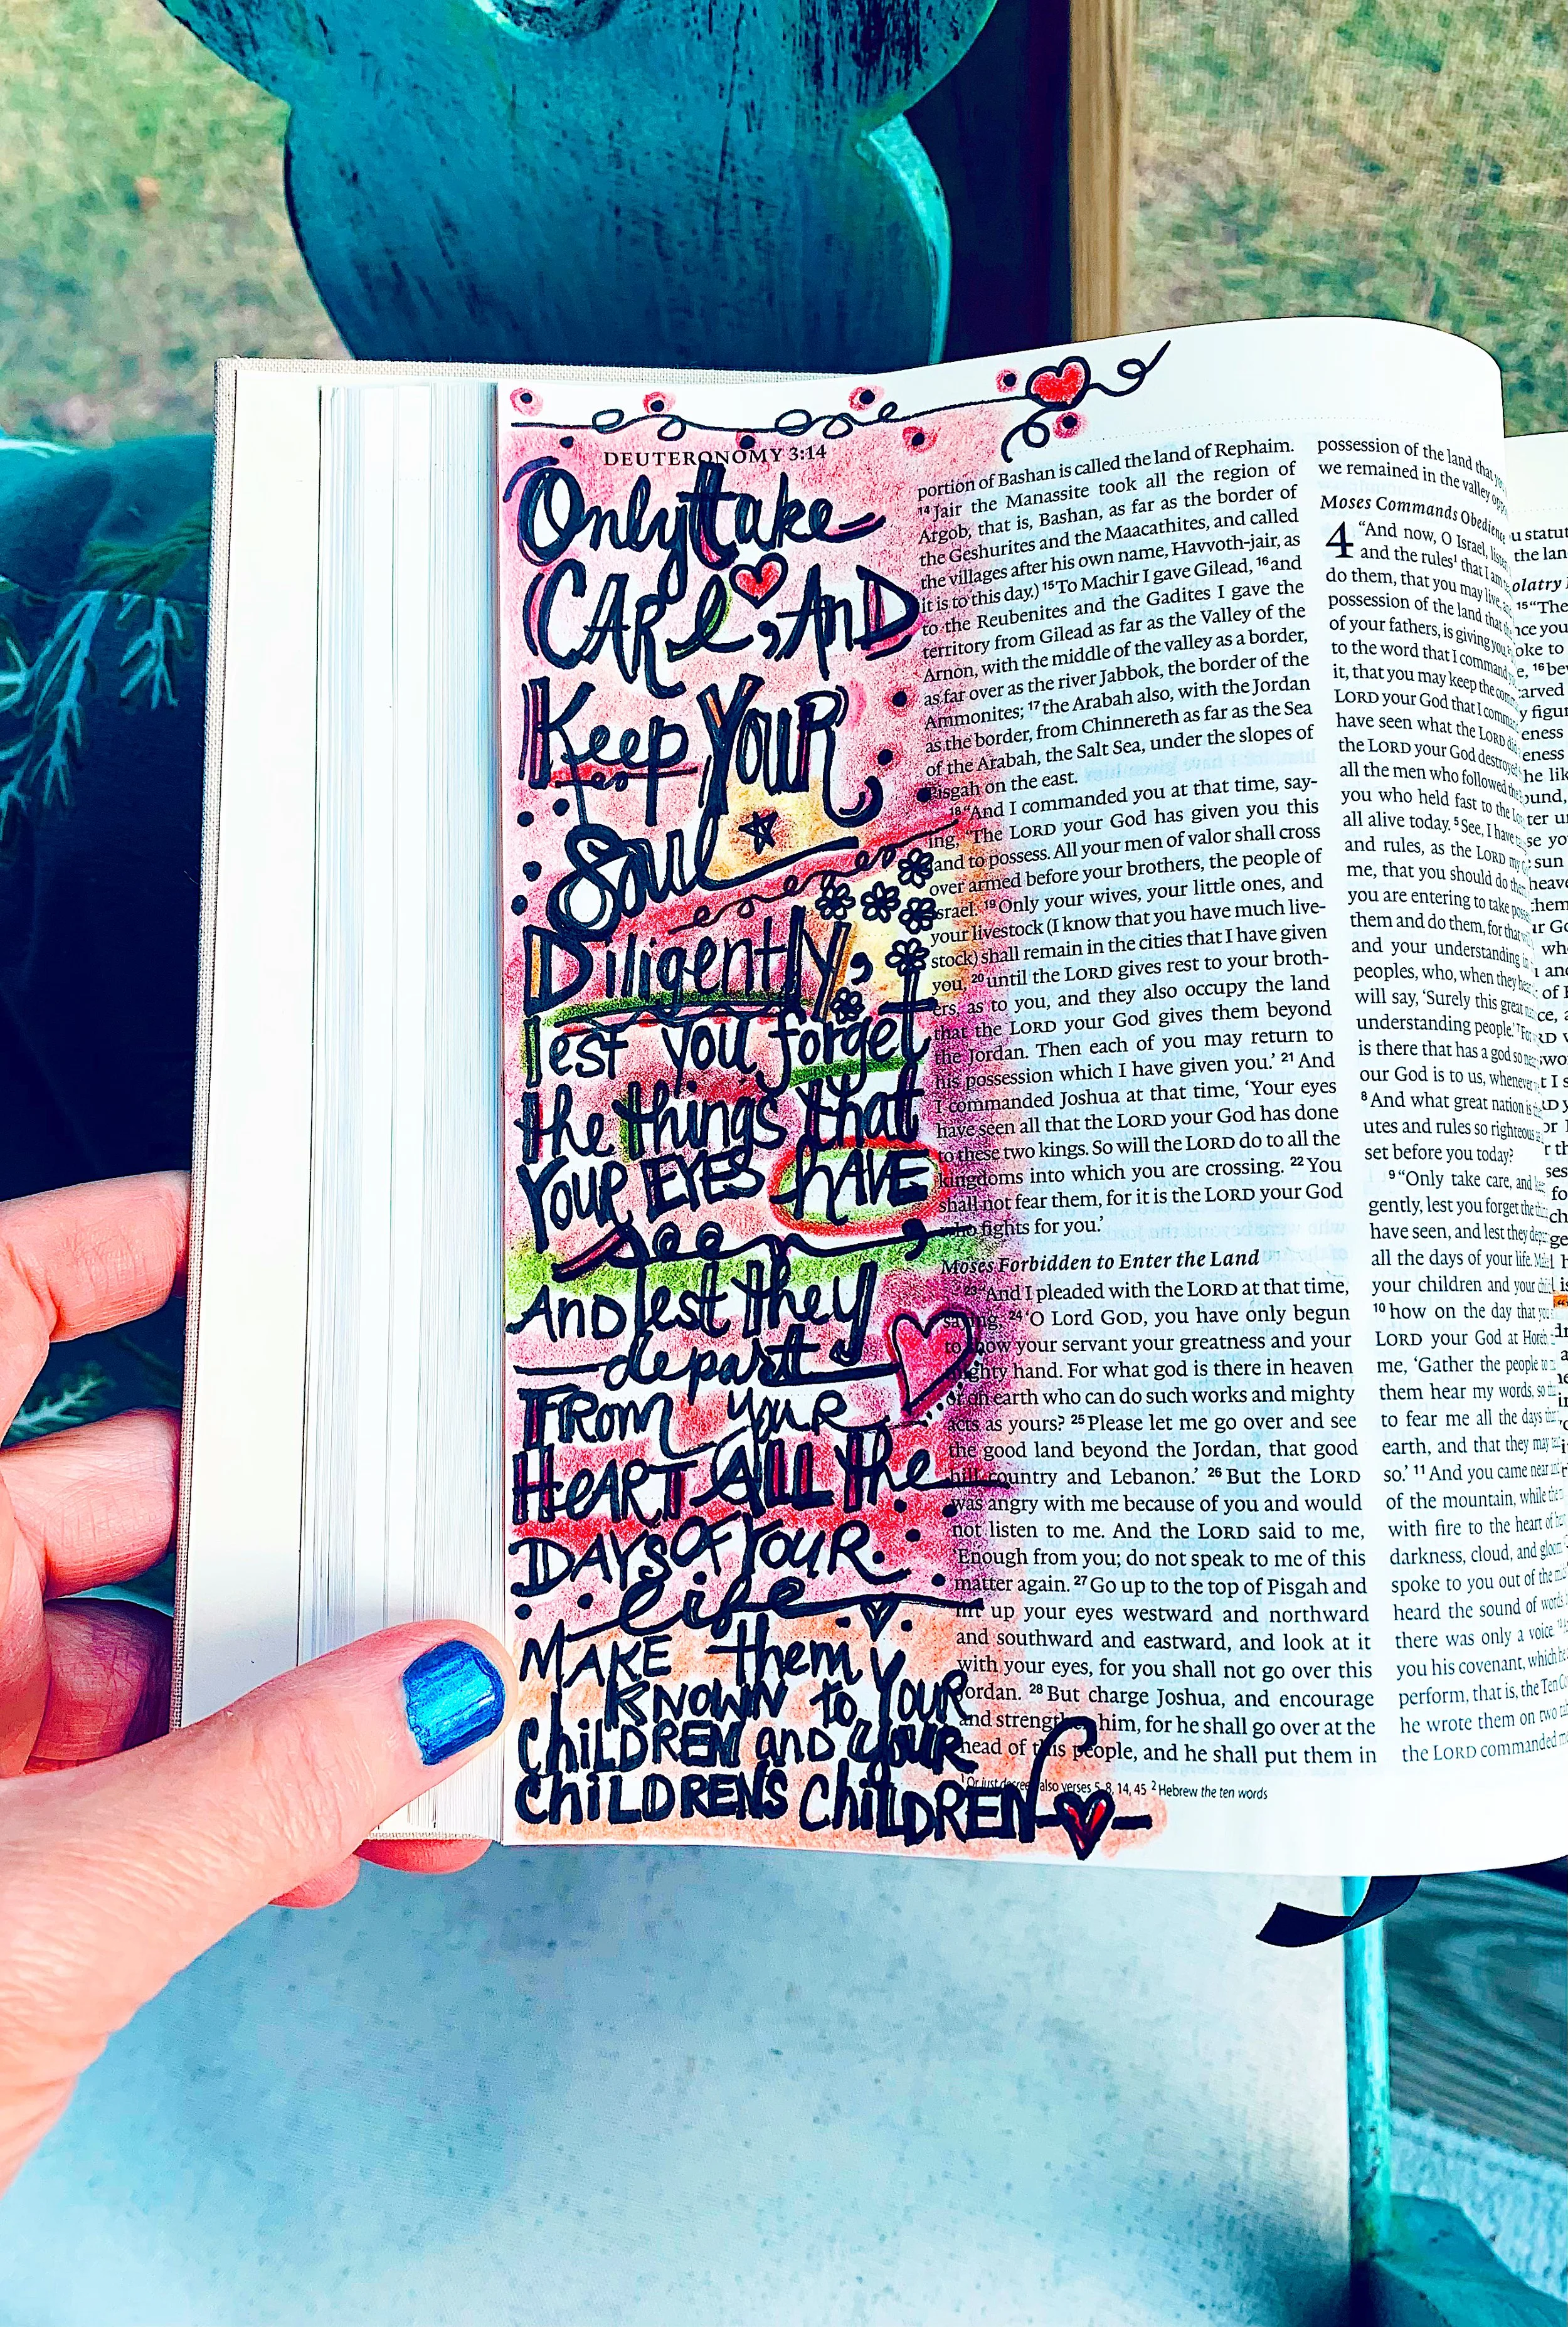 DEUTERONOMY 3:14
Only take
CARe, AND
Keep YOUR
Soul
Diligently,
lest you forget
the things that
YOUR EYES HAVE
seen,
AND lest they
depart
FROM YOUR
HEART ALL the
DAYS OF YOUR
life
MAKE them
KNOWN to YOUR
CHILDREN and YOUR
CHILDRENS CHILDREN
portion of Bashan is called the land of Rephaim.
14 Jair the Manassite took all the region of
Argob, that is, Bashan, as far as the border of
the Geshurites and the Maacathites, and called
the villages after his own name, Havvoth-jair, as
it is to this day.) 15 To Machir I gave Gilead, 16 and
to the Reubenites and the Gadites I gave the
territory from Gilead as far as the Valley of the
Arnon, with the middle of the valley as a border,
as far over as the river Jabbok, the border of the
Ammonites; 17 the Arabah also, with the Jordan
as the border, from Chinnereth as far as the Sea
of the Arabah, the Salt Sea, under the slopes of
Pisgah on the east.
18 “And I commanded you at that time, say-
ing, ‘The LORD your God has given you this
land to possess. All your men of valor shall cross
over armed before your brothers, the people of
Israel. 19 Only your wives, your little ones, and
your livestock (I know that you have much live-
stock) shall remain in the cities that I have given
you, 20 until the LORD gives rest to your broth-
ers, as to you, and they also occupy the land
that the LORD your God gives them beyond
the Jordan. Then each of you may return to
his possession which I have given you.’ 21 And
I commanded Joshua at that time, ‘Your eyes
have seen all that the LORD your God has done
to these two kings. So will the LORD do to all the
kingdoms into which you are crossing. 22 You
shall not fear them, for it is the LORD your God
who fights for you.’
Moses Forbidden to Enter the Land
23 “And I pleaded with the LORD at that time,
saying, 24 ‘O Lord GOD, you have only begun
to show your servant your greatness and your
mighty hand. For what god is there in heaven
or on earth who can do such works and mighty
acts as yours? 25 Please let me go over and see
the good land beyond the Jordan, that good
hill country and Lebanon.’ 26 But the LORD
was angry with me because of you and would
not listen to me. And the LORD said to me,
‘Enough from you; do not speak to me of this
matter again. 27 Go up to the top of Pisgah and
lift up your eyes westward and northward
and southward and eastward, and look at it
with your eyes, for you shall not go over this
Jordan. 28 But charge Joshua, and encourage
and strengthen him, for he shall go over at the
head of this people, and he shall put them in
1 Or just decrees; also verses 5, 8, 14, 45 2 Hebrew the ten words
possession of the land that
we remained in the valley
Moses Commands Obedience
4 “And now, O Israel, listen
and the rules1 that I am
do them, that you may live,
possession of the land that
of your fathers, is giving you
to the word that I command
it, that you may keep the
LORD your God that I
have seen what the LORD
the LORD your God destroyed
all the men who followed
you who held fast to the
all alive today. 5 See, I have
and rules, as the LORD my
me, that you should do
you are entering to take
them and do them, for that
and your understanding in
peoples, who, when they
will say, ‘Surely this great
understanding people.’ 7 For
is there that has a god so
our God is to us, whenever
8 And what great nation is
utes and rules so righteous
set before you today?
9 “Only take care, and
gently, lest you forget the
have seen, and lest they
all the days of your life.
your children and your
10 how on the day that you
LORD your God at Horeb
me, ‘Gather the people to
them hear my words, so
to fear me all the days
earth, and that they may
so.’ 11 And you came near
of the mountain, while the
with fire to the heart of
darkness, cloud, and gloom
spoke to you out of the
heard the sound of
there was only a voice
you his covenant, which
perform, that is, the Ten
he wrote them on two
the LORD commanded